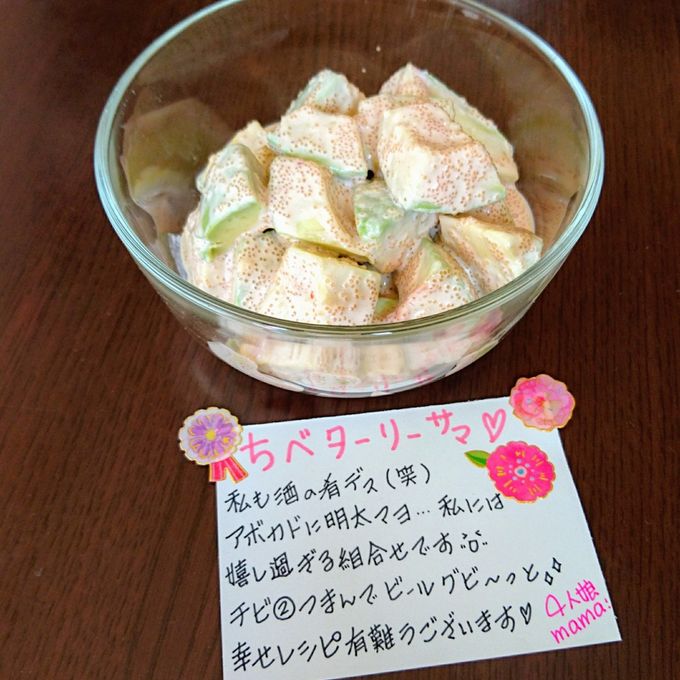 ちベターリーサマ♡
私も酒の肴デス(笑)
アボカドに明太マヨ…私には
嬉し過ぎる組合せです
チビ②つまんでビールグビ〜っと
幸せレシピ有難うございます♡
4人娘
mama